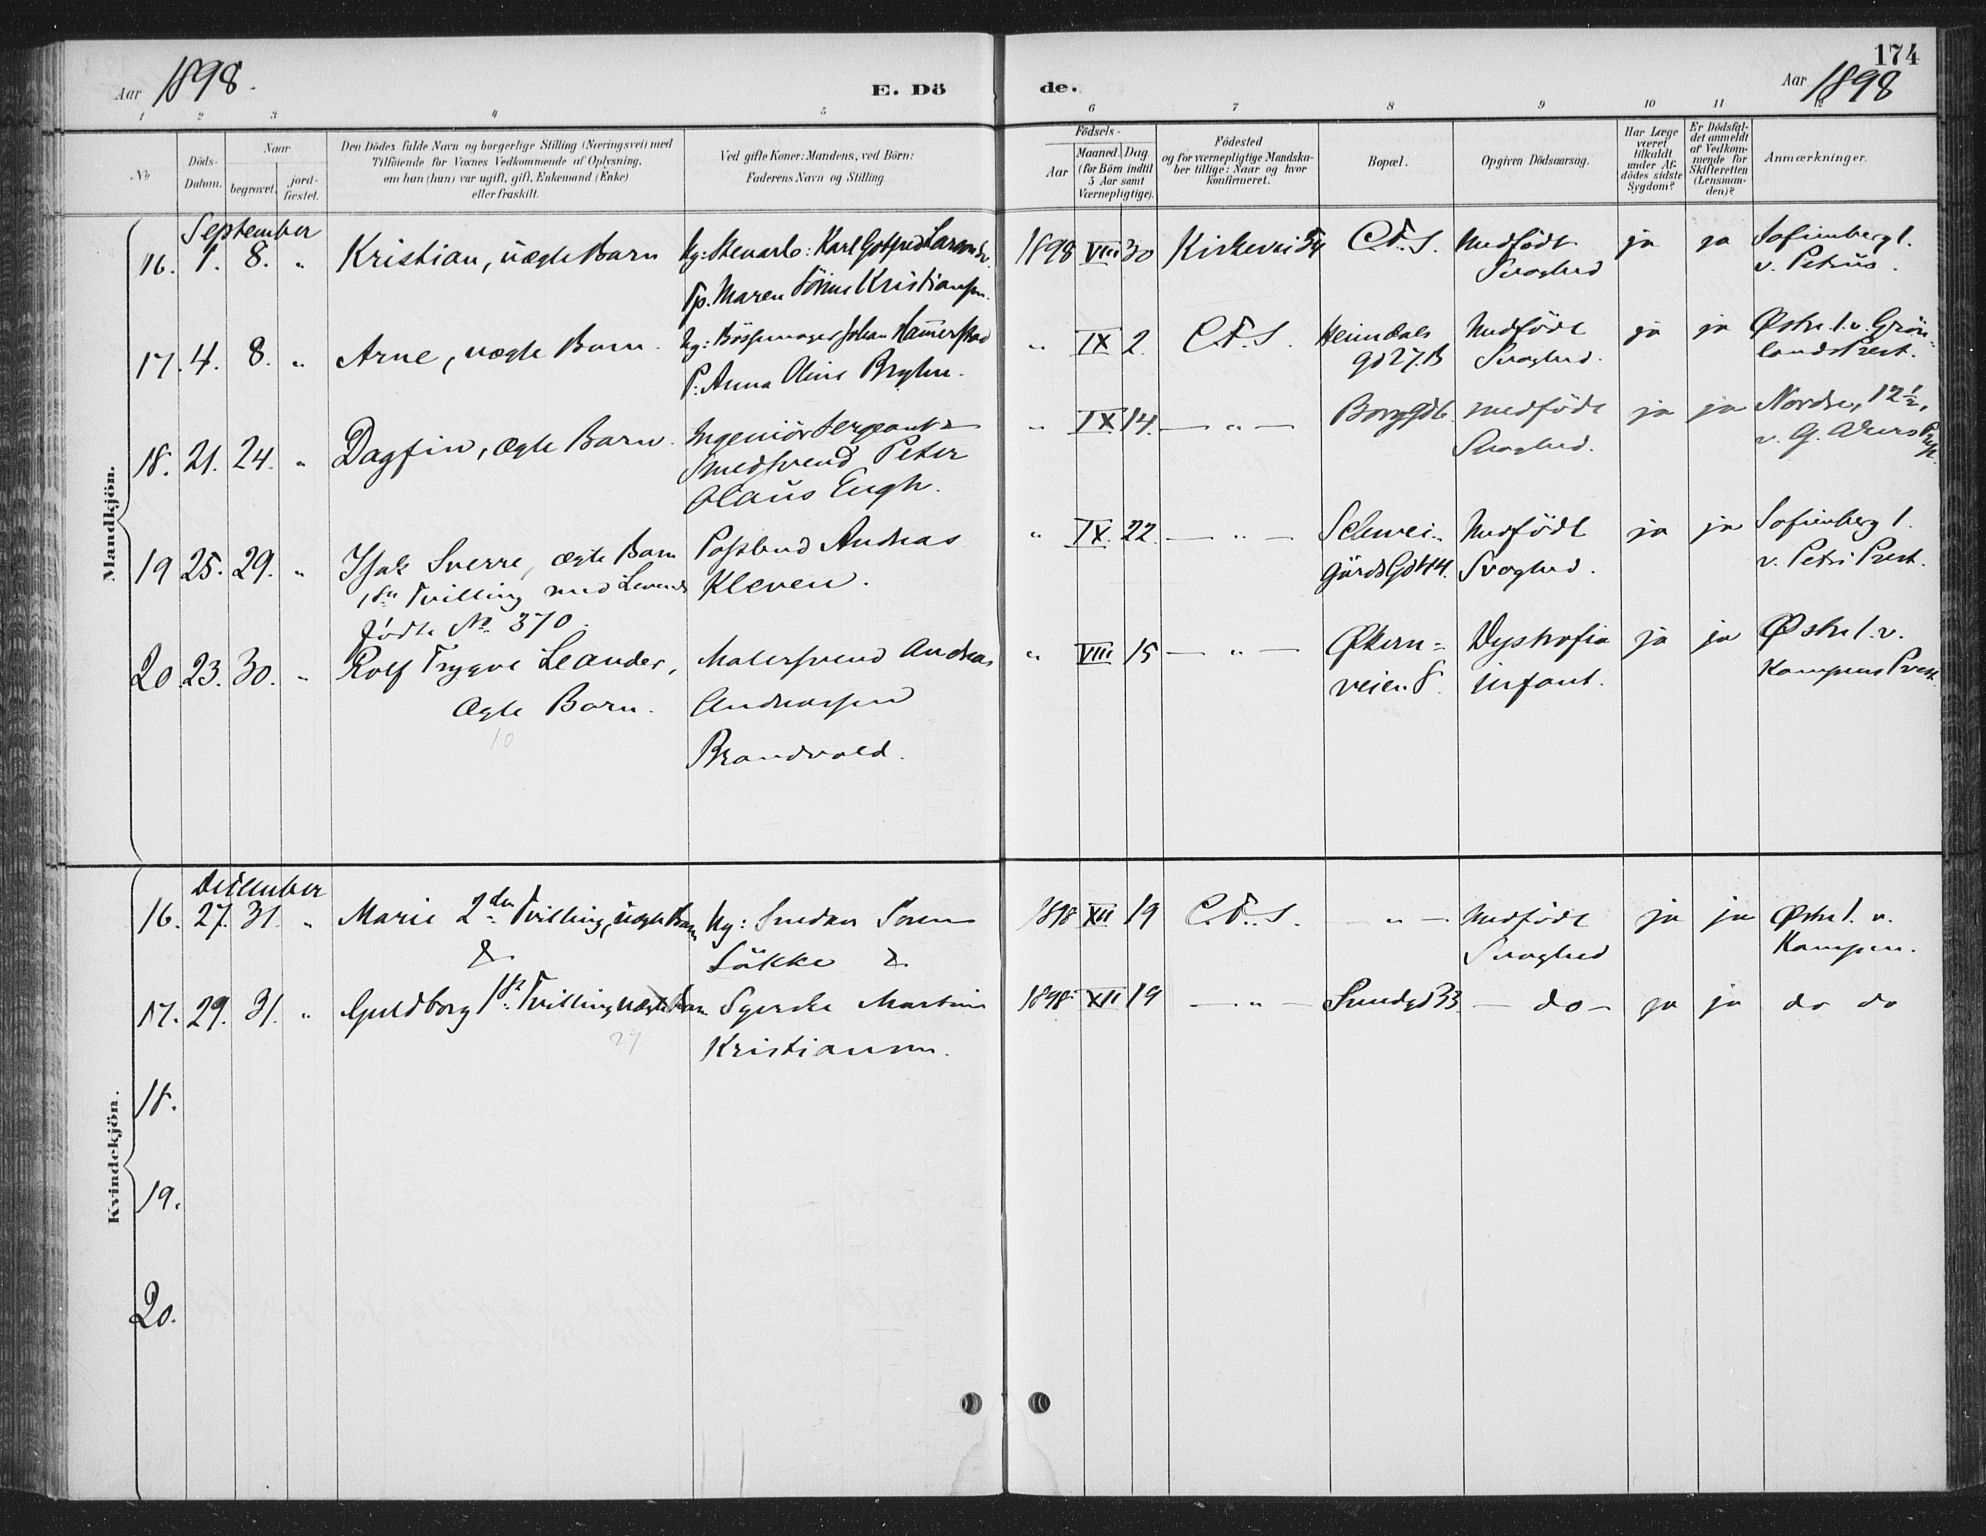 174
Aar 1898.
E. Dö
de.
Aar 1898
1 2 3 4 5 6 7 8 9 10 11 12
No
Döds-
Datum.
Naar
begravet.
jord-
fæstet.
Den Dödes fulde Navn og borgerlige Stilling (Næringsvei) med
Tilföiende for Voxnes Vedkommende af Oplysning,
om han (hun) var ugift, gift, Enkemand (Enke)
eller fraskilt.
Ved gifte Koner: Mandens, ved Börn:
Faderens Navn og Stilling
Födsels-
Aar
Maaned Dag
(for Börn indtil
5 Aar samt
Værnepligtige).
Födested
og for værnepligtige Mandska-
ber tillige: Naar og hvor
konfirmeret.
Bopæl.
Opgiven Dödsaarsag.
Har Læge
været
tilkaldt
under Af-
dödes sidste
Sygdom?
Er Dödsfal-
det anmeldt
af Vedkom-
mende for
Skifteretten
(Lensman-
den)?
Anmærkninger.
Mandkjön.
September
16. 1. 8. " Kristian, uægte Barn
Ug: Karl Gotfred
P. Maren Kristiansen.
1898 VIII 30 Kirkevei C.F.S. Medfödt
Svaghed
ja ja Sofienberg 1.
v. Petrus.
17. 4. 8. " Arne, uægte Barn.
Ug: Johan
P. Anna Oline
" IX 2. C.F.S. Heimdals
gd 27.B
Medfödt
Svaghed.
ja ja Østre 1. v. Grön-
lands Prest.
18. 21. 24. " Dagfin, ægte Barn.
Ingeniörsergeant &
Smedsvend Peter
Olaus Engh.
" IX 14. — " — Borggd 6 medfödt
Svaghed.
ja ja Nordre, 12 1/2,
v. G. Akers
19 25. 29. " Isak Sverre, ægte Barn
1ste Tvilling med Levende
födte No 370.
Postbud Andreas
Kleven.
" IX. 22. — " — Schwei-
gårds Gd 44.
Medfödt
Svaghed.
ja ja Sofienberg 1.
v. Petri Prest.
20. 23. 30. " Rolf Trygve Leander,
Ægte Barn.
10
Malersvend Andreas
Andreassen
Brandvold.
" VIII 15 — " — Økern=
veien 8.
Dystrofia
infant.
ja ja Østre 1. v.
Kampens Prest.
Kvindekjön.
December
16. 27. 31. " Marie 2den Tvilling, uægte Barn
&
Ug: Smedsv
&
1898 XII 19 C.F.S. " — Medfödt
Svaghed
ja ja Østre 1. v.
Kampen.
17. 29. 31. " Guldborg 1ste Tvilling uægte Barn
27
Syerske Martine
Kristiansen.
1898 XII 19 — " — Smedgd 33. — do — ja ja do do
18.
19.
20.